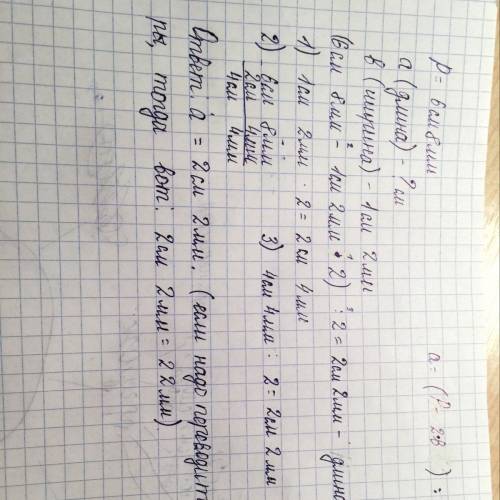 P = 6 см 8 мм a = (P - 2в) :
a (длина) - ? см
в (ширина) - 1 см 2 мм
(6 см 8 мм - 1 см 2 мм · 2) : 2 = 2 см 2 мм - длина
1) 1 см 2 мм · 2 = 2 см 4 мм
2) 6 см 8 мм 3) 4 см 4 мм : 2 = 2 см 2 мм
2 см 4 мм
4 см 4 мм
Ответ: a = 2 см 2 мм. (если надо переводит
ры, тогда вот: 2 см 2 мм = 22 мм)